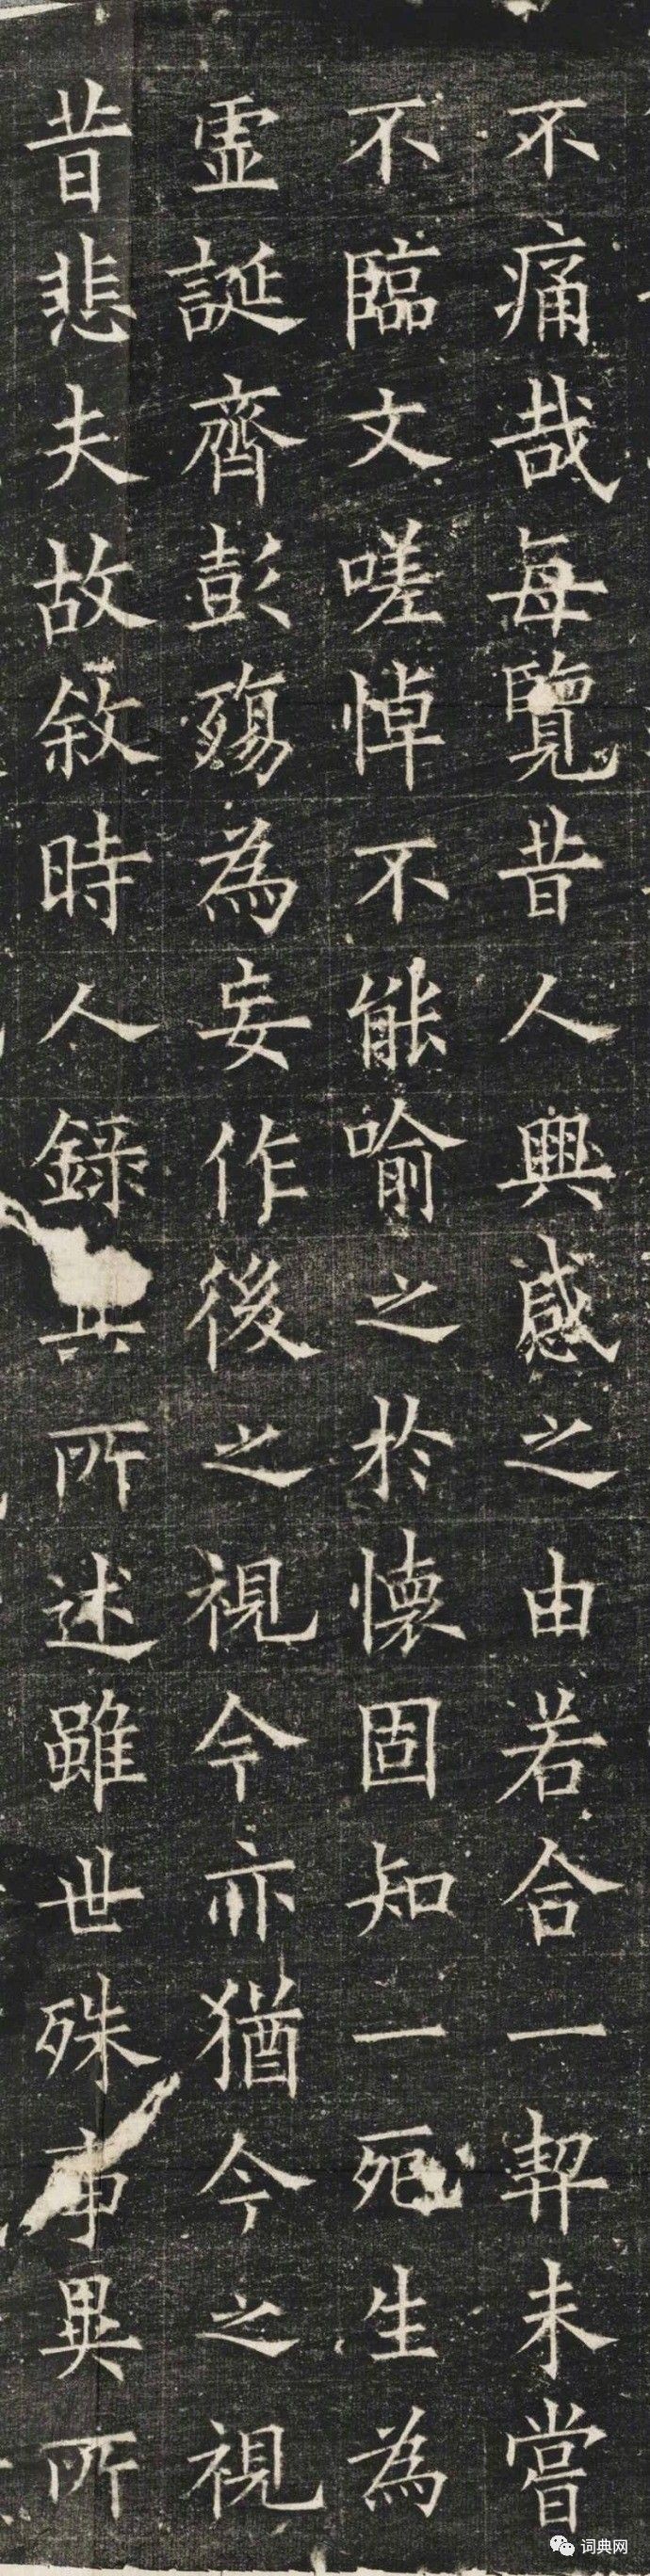 不痛哉每覽昔人興感之由若合一契未嘗
不臨文嗟悼不能喻之於懷固知一死生為
虛誕齊彭殤為妄作後之視今亦猶今之視
昔悲夫故敘時人錄其所述雖世殊事異所
词典网